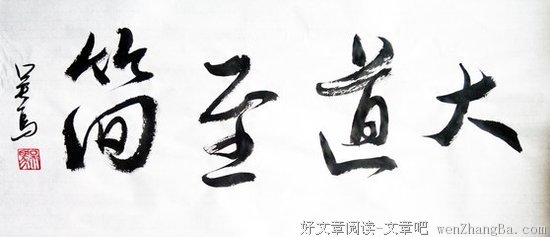 大道至简
好文章阅读-文章吧 wenZhangBa.com